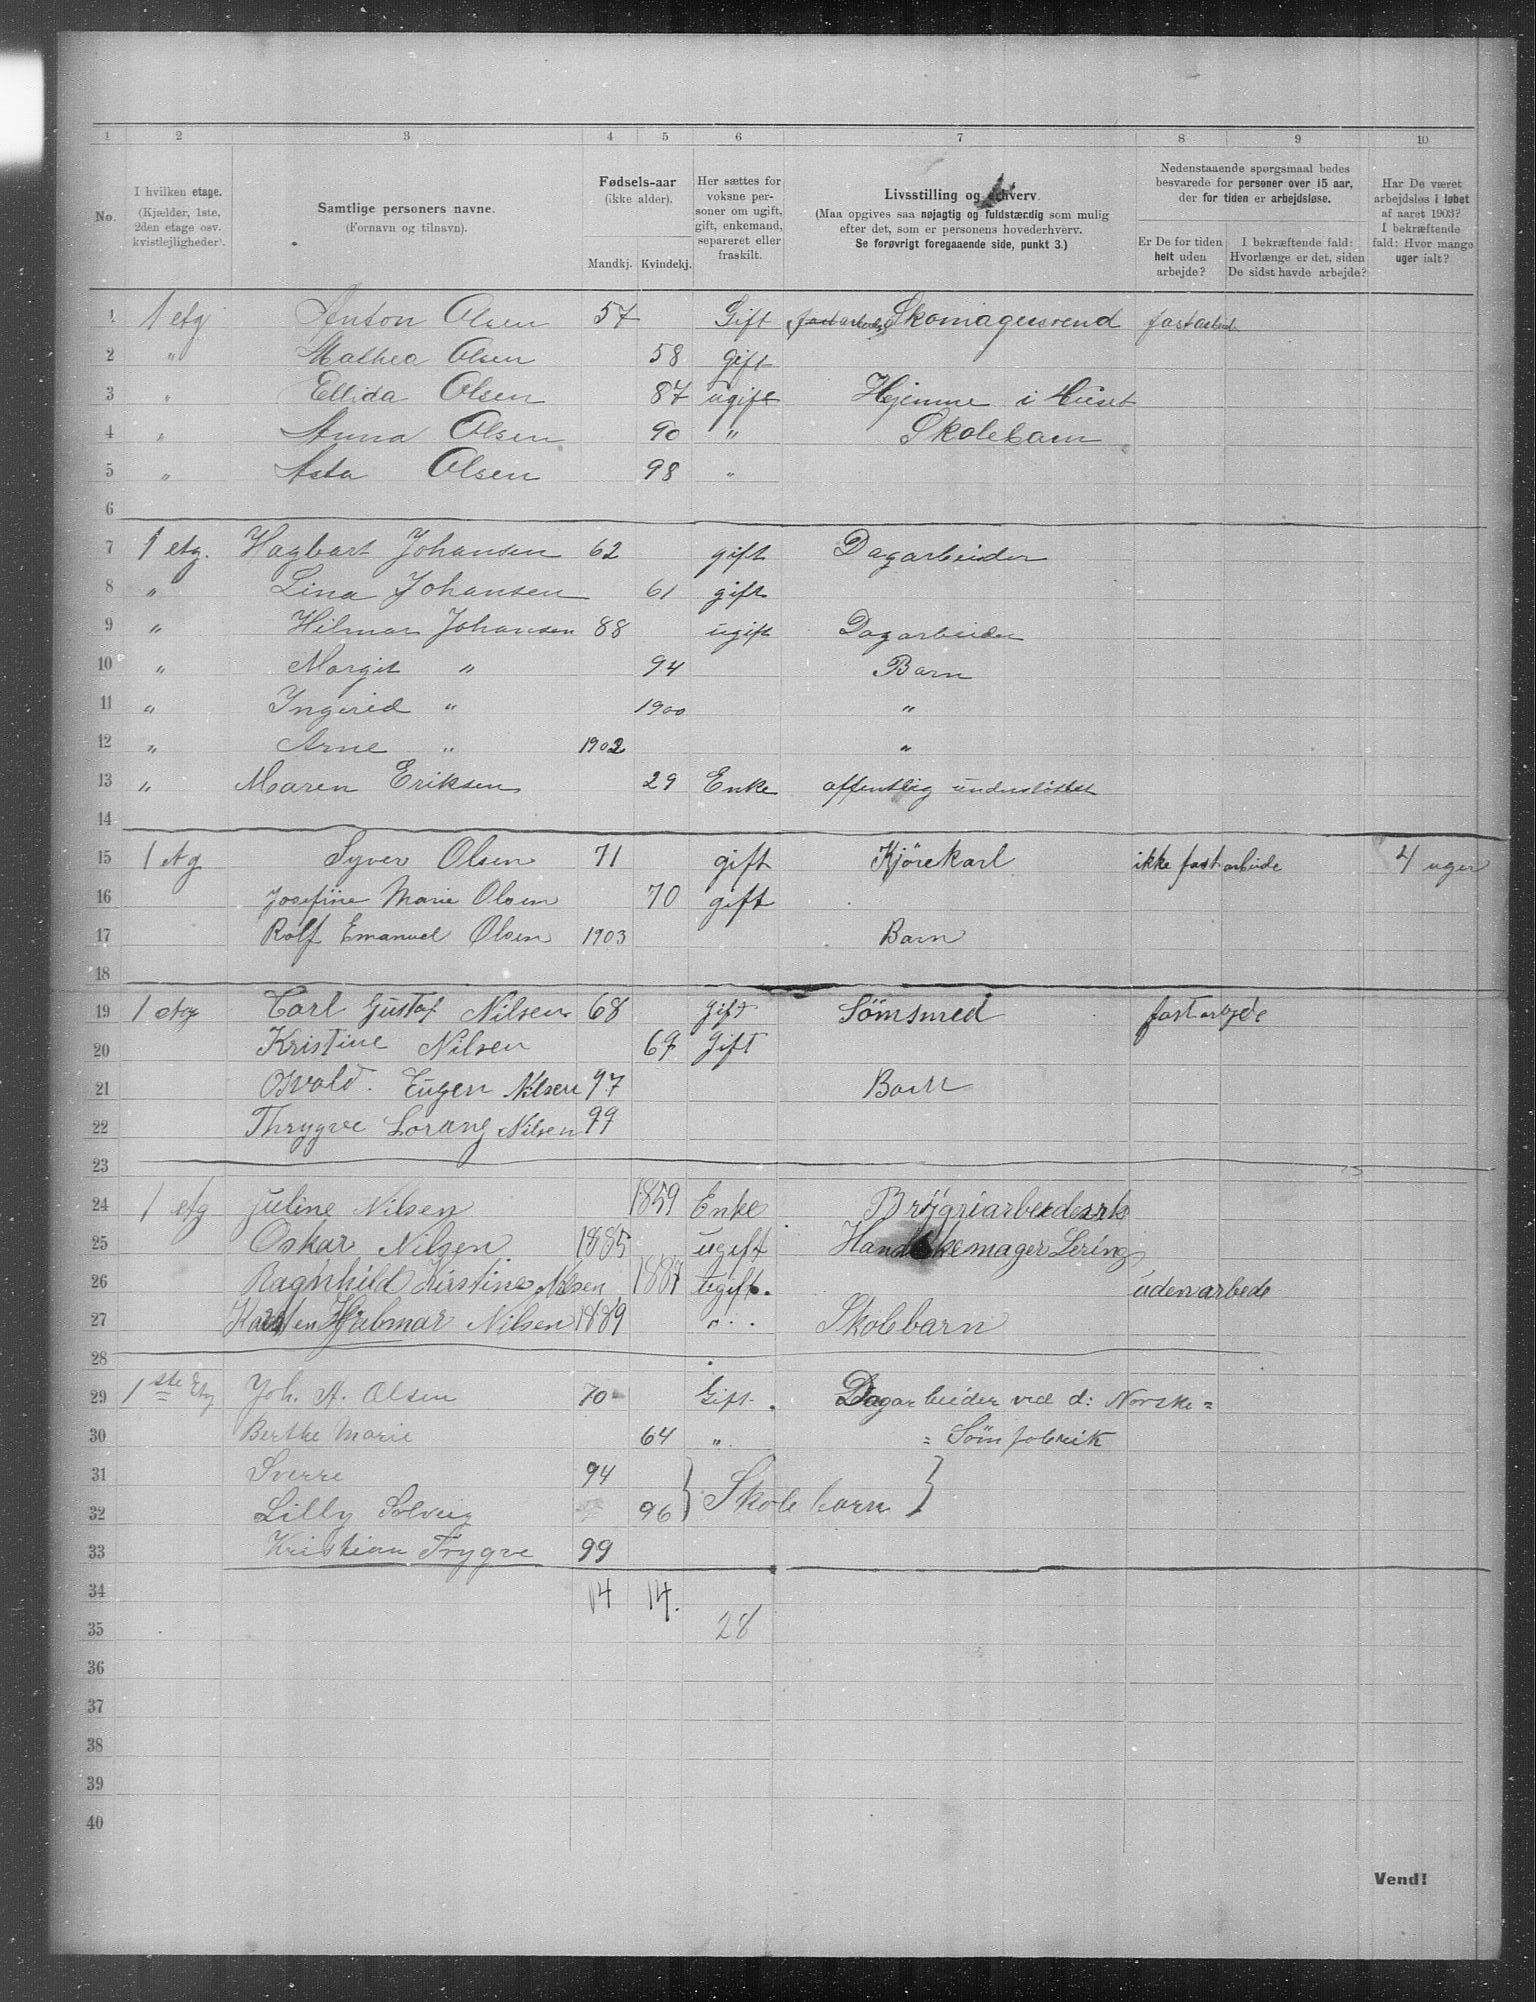 1 2 3 4 5 6 7 8 9 10
No.
I hvilken etage. (Kjælder, 1ste, 2den etage osv. kvistlejligheder).
Samtlige personers navne. (Fornavn og tilnavn).
Fødsels-aar (ikke alder). Mandkj. Kvindekj.
Her sættes for voksne personer om ugift, gift, enkemand, separeret eller fraskilt.
Livsstilling og erhverv. (Maa opgives saa nøjagtig og fuldstændig som mulig efter det, som er personens hovederhverv. Se forøvrigt foregaaende side, punkt 3.)
Nedenstaaende spørgsmaal bedes besvarede for personer over 15 aar, der for tiden er arbejdsløse.
Er De for tiden helt uden arbejde?
I bekræftende fald: Hvorlænge er det, siden De sidst havde arbejde?
Har De været arbejdsløs i løbet af aaret 1903? I bekræftende fald: Hvor mange uger ialt?
1 1 etg Anton Olsen 57 Gift Skomagersvend fast arbeide
2 " Mathea Olsen 58 gift
3 " Ellida Olsen 87 ugift Hjemme i Huset
4 " Anna Olsen 90 " Skolebarn
5 " Asta Olsen 98 "
6
7 1 etg. Hagbart Johansen 62 gift Dagarbeider
8 " Lina Johansen 61 gift
9 " Hilmar Johansen 88 ugift Dagarbeider
10 " Margit " 94 Barn
11 " Ingerid " 1900 "
12 " Arne " 1902 "
13 " Maren Eriksen 29 Enke offentlig understøttet
14
15 1 etg Syver Olsen 71 gift Kjørekarl ikke fast arbeide 4 uger
16 Josefine Marie Olsen 70 gift
17 Rolf Emanuel Olsen 1903 Barn
18
19 1 etg Carl Gustaf Nilsen 68 Gift Sömsmed fast arbejde
20 Kristine Nilsen 69 Gift
21 Osvald. Eugen Nilsen 97 Barn
22 Thrygve Lorang Nilsen 99
23
24 1 etg Juline Nilsen 1859 Enke
25 Oskar Nilsen 1885 ugift Handskemager Lering
26 Ragnhild Kirstine Nilsen 1887 ugift. uden arbede
27 Karsten Hjalmar Nilsen 1889 " Skolebarn
28
29 1ste Etg Joh. A. Olsen 70 Gift. Dagarbeider ved d: Norske =
30 Berthe Marie 64 " = Sömfabrik
31 Sverre 94
32 Lilly Solveig 96 } Skolebarn }
33 Kristian Trygve 99
34 14 14.
35 28
36
37
38
39
40
Vend!